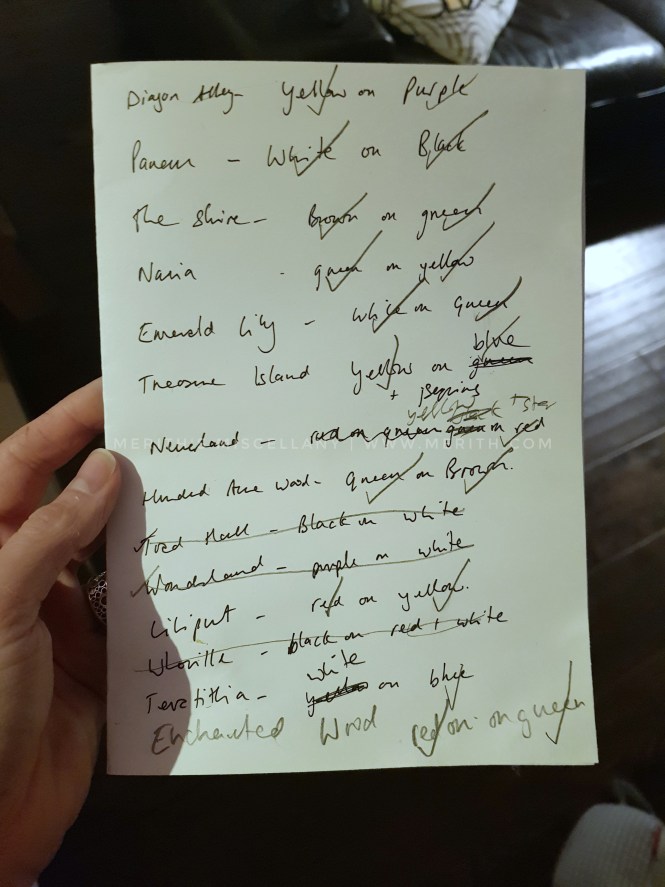 Diagon Alley - Yellow on Purple
Panem - White on Black
The Shire - Brown on green
Naria - green on yellow
Emerald City - White on Green
blue
Treasure Island Yellow on green
+ jsepring
yellow black + Star
Neverland - red on green green on red
MERITH MISCELLANY | WWW.MERITH.COM
Hunded Acre Wood - green on Brown.
Toad Hall - Black on white
Wonderland - purple on white
Liliput - red on yellow.
Whoville - black on red + white
white
Terabithia - yellow on blue
Enchanted Wood red on on green